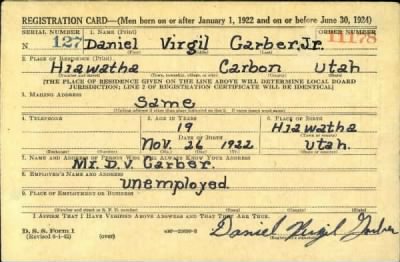 REGISTRATION CARD—(Men born on or after January 1, 1922 and on or before June 30, 1924)
SERIAL NUMBER 1. NAME (Print) ORDER NUMBER
N 127 Daniel Virgil Garber, Jr. 11178
(First) (Middle) (Last)
2. PLACE OF RESIDENCE (Print)
Hiawatha Carbon Utah
(Number and street) (Town, township, village, or city) (County) (State)
[THE PLACE OF RESIDENCE GIVEN ON THE LINE ABOVE WILL DETERMINE LOCAL BOARD
JURISDICTION; LINE 2 OF REGISTRATION CERTIFICATE WILL BE IDENTICAL]
3. MAILING ADDRESS
Same
(Mailing address if other than place indicated on line 2. If same insert word same)
4. TELEPHONE 5. AGE IN YEARS 6. PLACE OF BIRTH
19 Hiawatha
DATE OF BIRTH (Town or county)
Nov. 26 1922 Utah.
(Exchange) (Number) (Mo.) (Day) (Yr.) (State or country)
7. NAME AND ADDRESS OF PERSON WHO WILL ALWAYS KNOW YOUR ADDRESS
Mr. D.V. Garber.
8. EMPLOYER'S NAME AND ADDRESS
Unemployed.
9. PLACE OF EMPLOYMENT OR BUSINESS
(Number and street or R. F. D. number) (Town) (County) (State)
I AFFIRM THAT I HAVE VERIFIED ABOVE ANSWERS AND THAT THEY ARE TRUE.
D. S. S. Form 1 Daniel Virgil Garber
(over) (Registrant's signature)